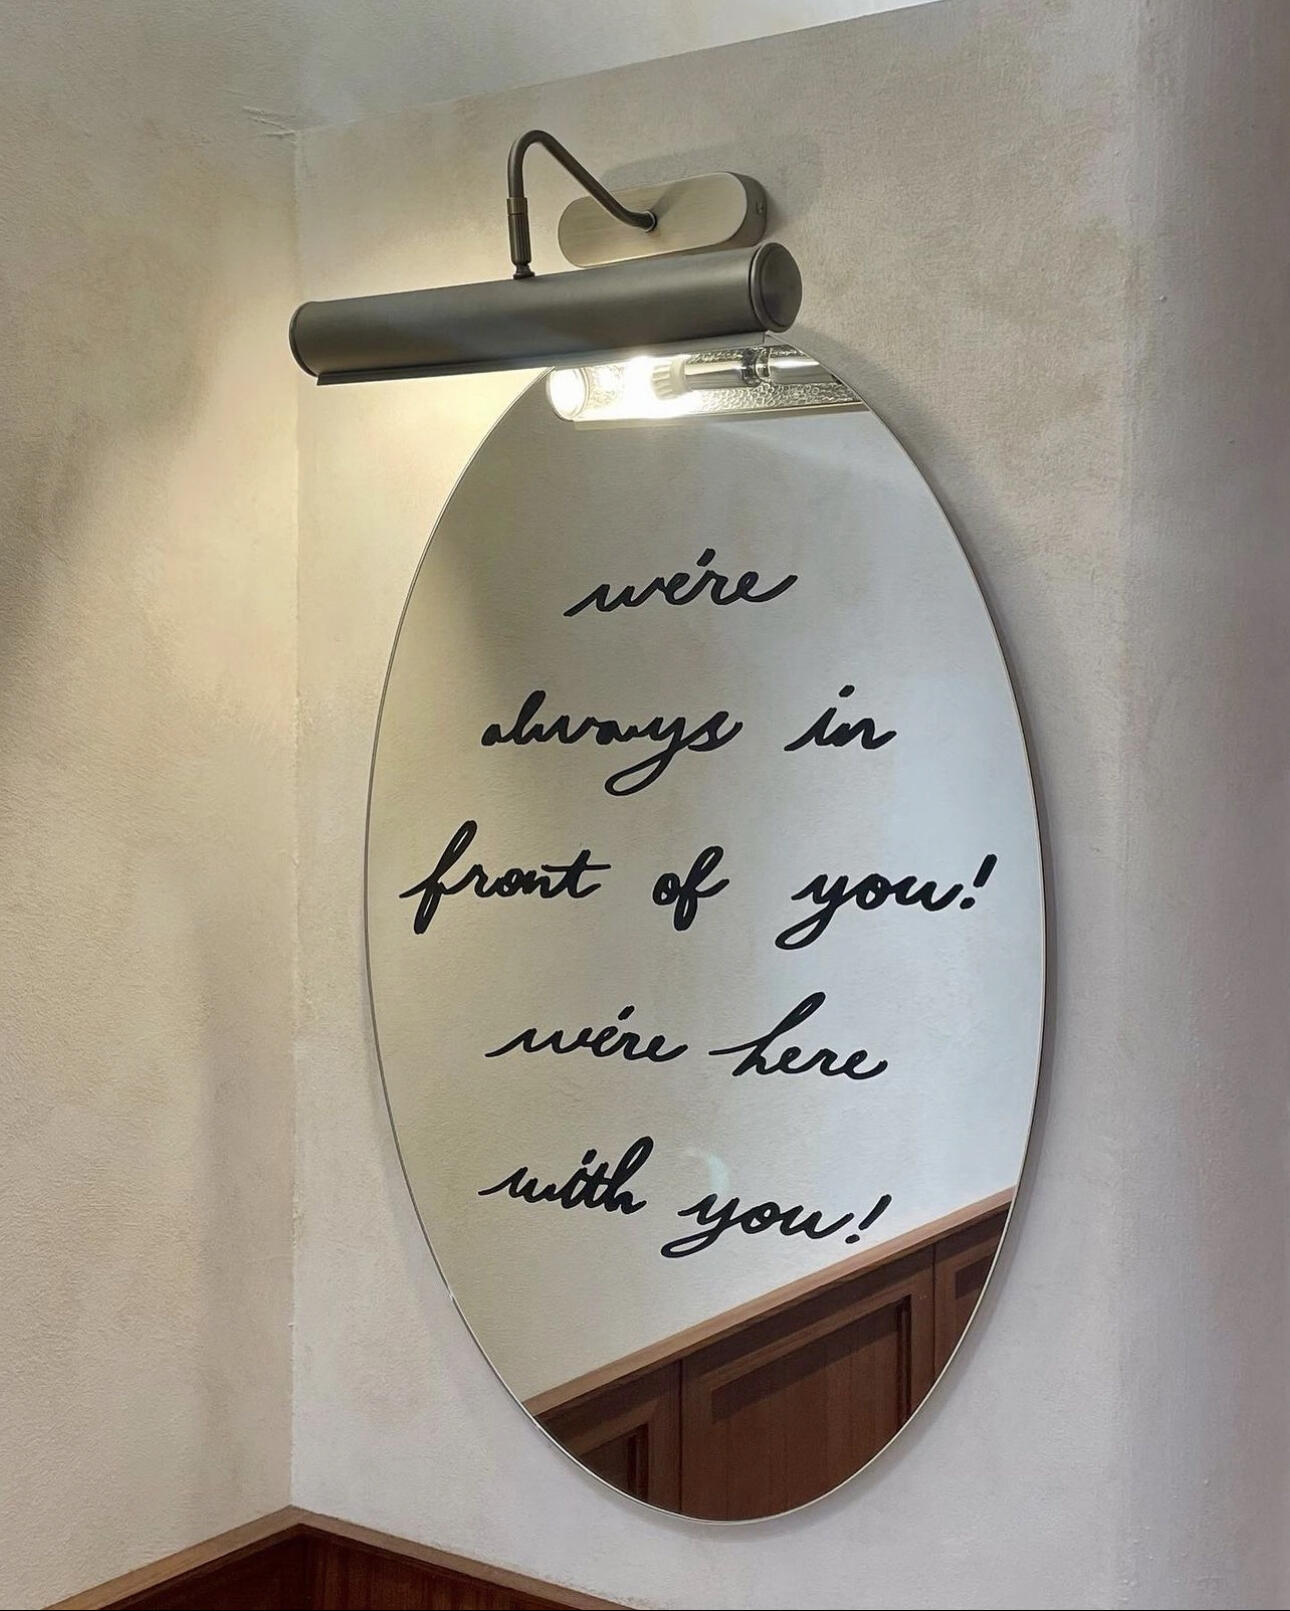 we're
always in
front of you!
we're here
with you!